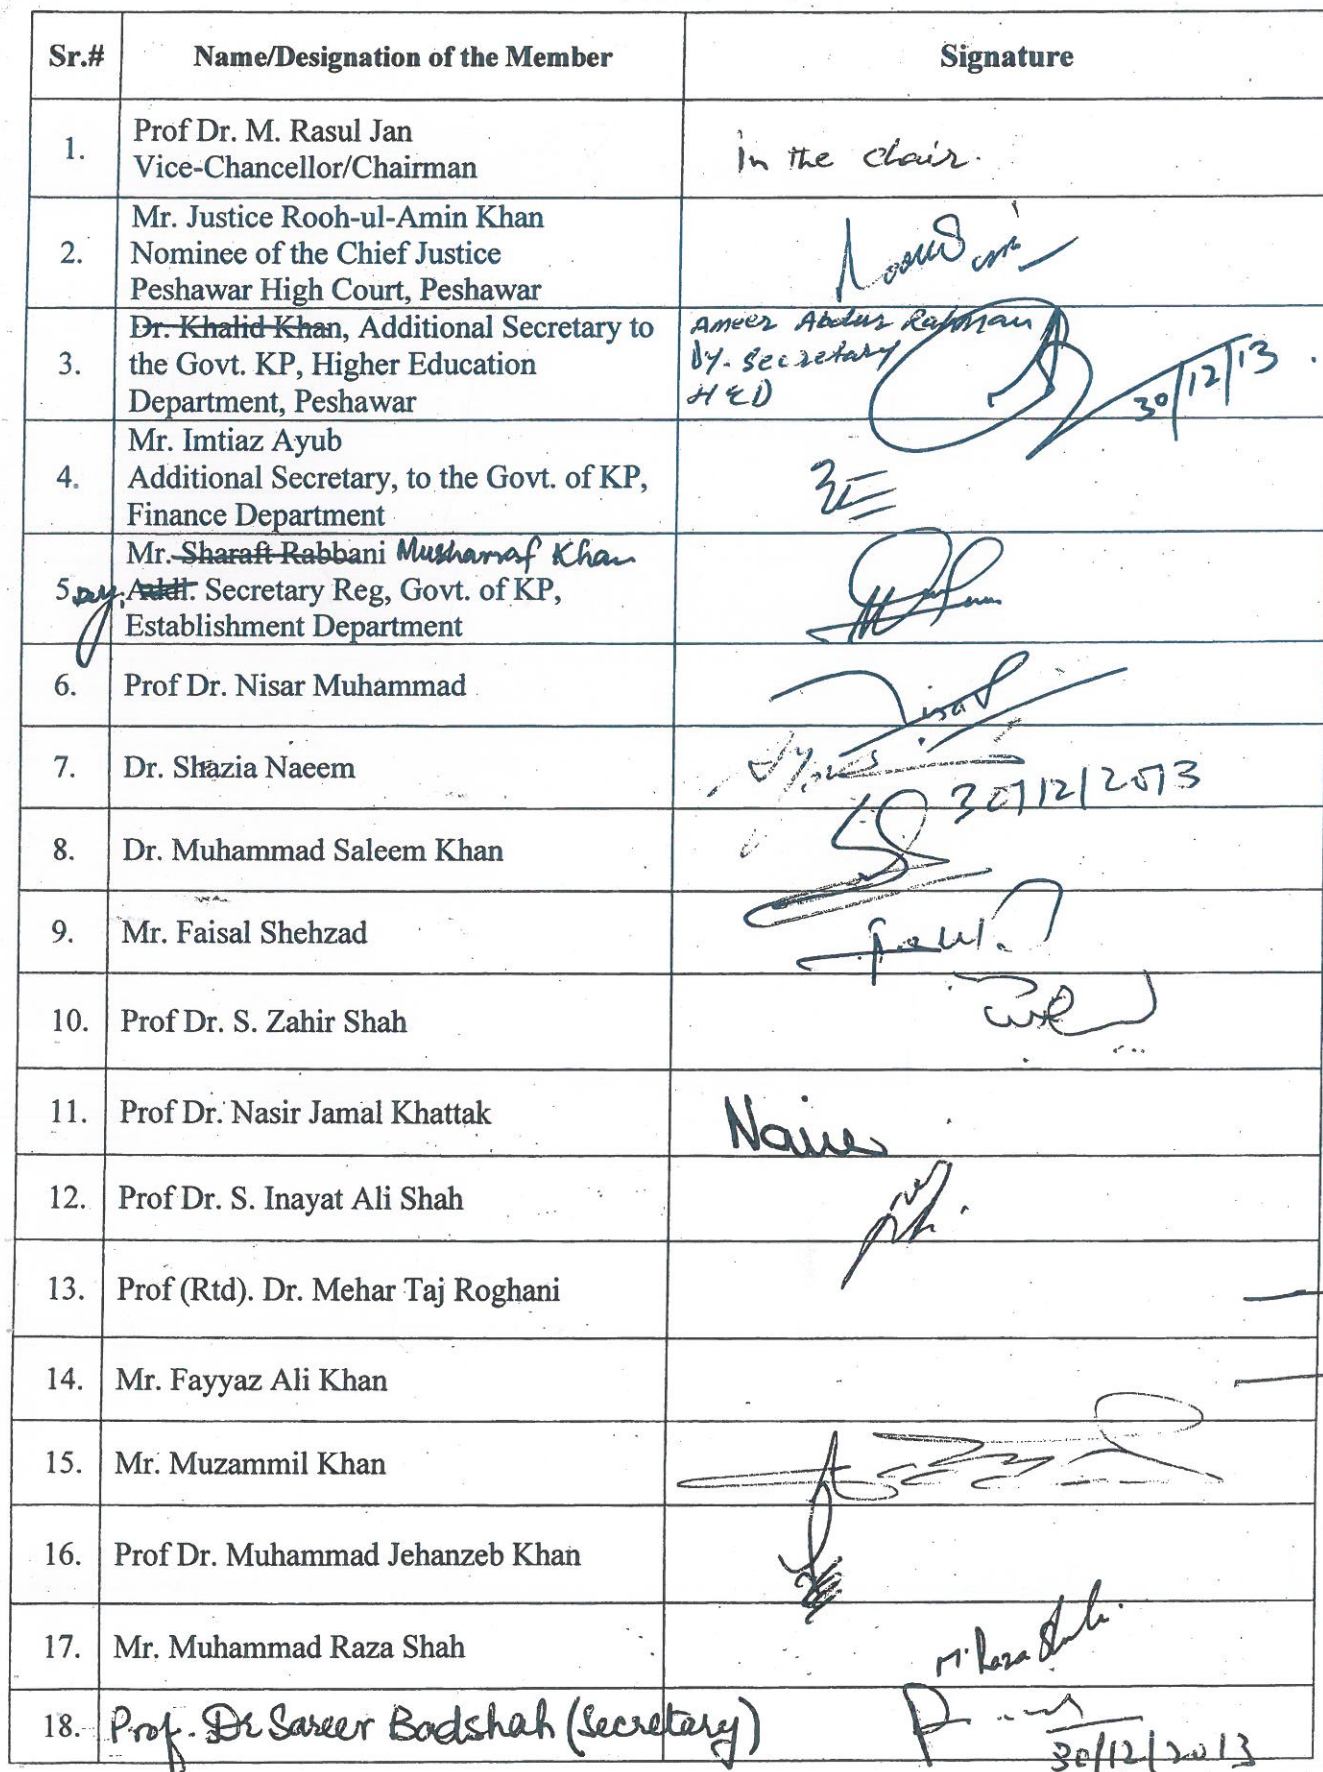 Sr.# Name/Designation of the Member Signature
1. Prof Dr. M. Rasul Jan
Vice-Chancellor/Chairman
In the chair.
2. Mr. Justice Rooh-ul-Amin Khan
Nominee of the Chief Justice
Peshawar High Court, Peshawar
3. Dr. Khalid Khan, Additional Secretary to
the Govt. KP, Higher Education
Department, Peshawar
Ameer Abdur Rahman
Dy. Secretary
HED
30/12/13
4. Mr. Imtiaz Ayub
Additional Secretary, to the Govt. of KP,
Finance Department
5. Mr. Sharaft Rabbani Musharraf Khan
Dy. Addl. Secretary Reg, Govt. of KP,
Establishment Department
6. Prof Dr. Nisar Muhammad
Nisar
7. Dr. Shazia Naeem
30/12/2013
8. Dr. Muhammad Saleem Khan
9. Mr. Faisal Shehzad
10. Prof Dr. S. Zahir Shah
11. Prof Dr. Nasir Jamal Khattak
12. Prof Dr. S. Inayat Ali Shah
13. Prof (Rtd). Dr. Mehar Taj Roghani
14. Mr. Fayyaz Ali Khan
15. Mr. Muzammil Khan
16. Prof Dr. Muhammad Jehanzeb Khan
17. Mr. Muhammad Raza Shah
M. Raza Shah
18. Prof. Dr Sareer Badshah (Secretary)
30/12/2013